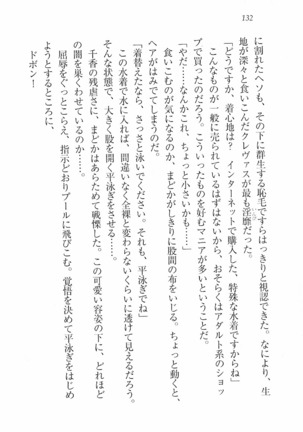 132
に割れたヘソも、その下に群生する恥毛ですらはっきりと視認できた。なにより、生
地が深々と食いこんだクレヴァスが最も淫靡だった。
「どうですか、着心地は？　インターネットで購入した、特殊な水着ですからね」
こんなものが一般に売られているはずはないから、おそらくはアダルト系のショッ
プで買ったのだろう。こういったものを好むマニアが多いということだ。
「やだ……なんかこれ、ちょっと小さいかも……」
食いこむのが気になるのか、まどかがしきりに股間の布をいじる。ちょっと動くと、
ヘアがはみでてしまうのだ。
「着替えたなら、さっさと泳いでください。それも、平泳ぎでね」
この水着で水に入れば、間違いなく全裸と変わらないくらいに透けて見えるだろう。
そんな状態で、大きく股を開く平泳ぎをさせる……。
千香の残虐さに、まどかはあらためて戦慄した。この可愛い容姿の下に、どれほど
の闇を巣くわせているのか……。
屈辱をぐっとこらえ、指示どおりプールに飛びこむ。覚悟を決めて平泳ぎをはじめ
ようとするところに、
ドボン！